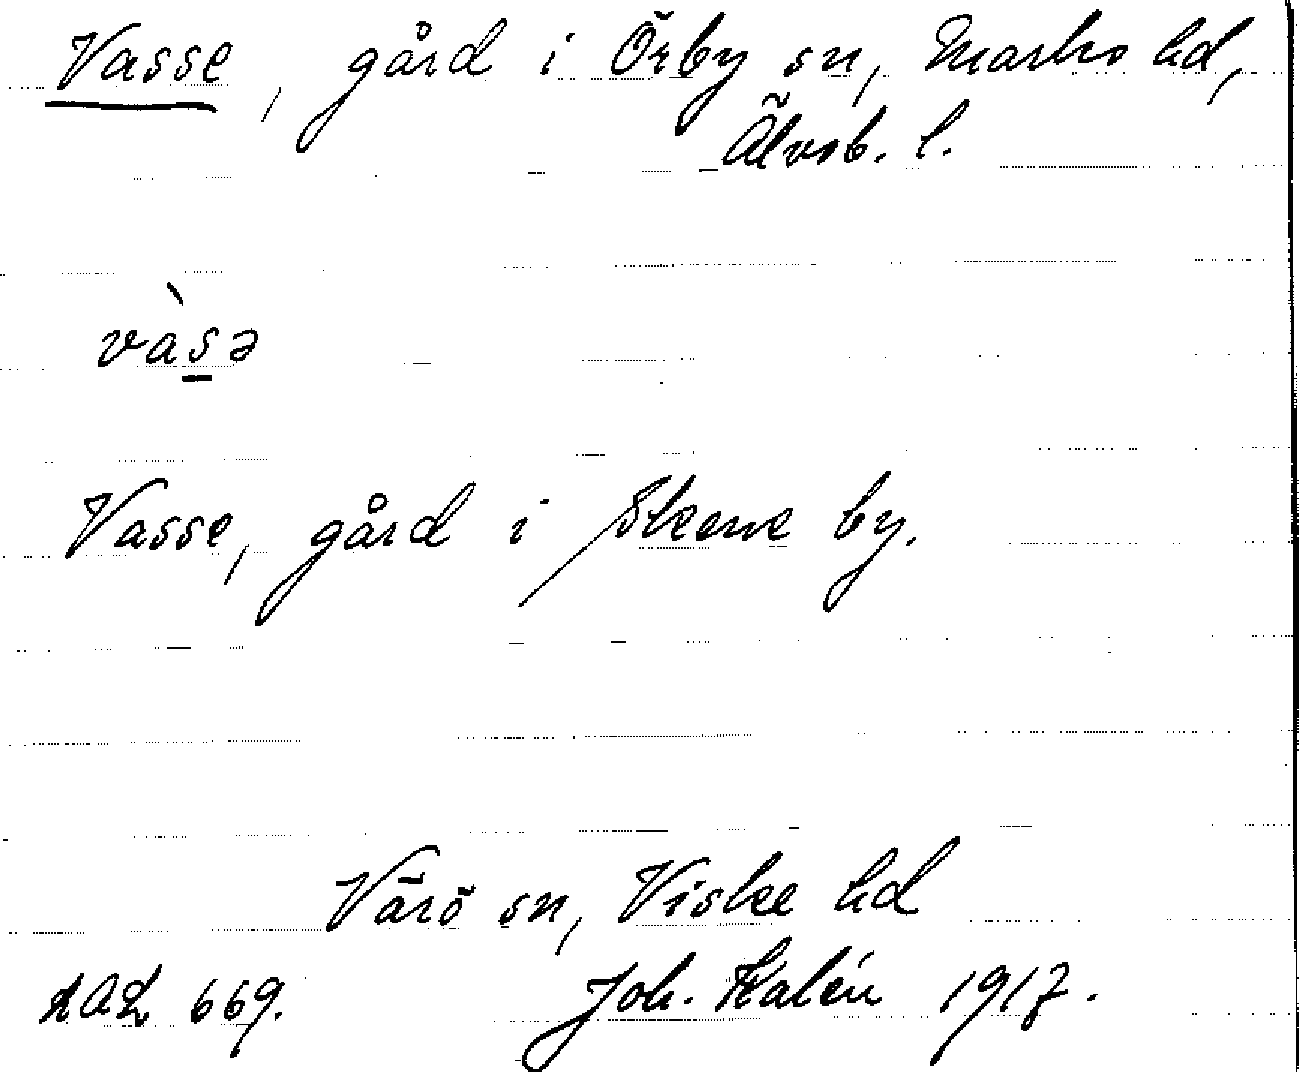 Vasse, gård i Örby sn, Marks hd,
Älvsb. l.
vàsə
Vasse, gård i Skene by.
Värö sn, Viske hd
669. Joh. Kalén 1917.